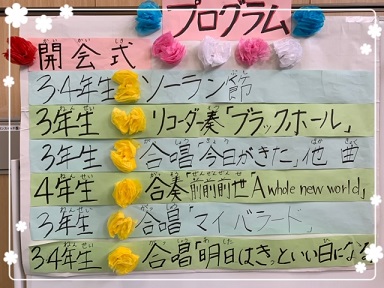 プログラム
開会式
3.4年生 ソーラン節
3年生 リコーダー奏「ブラックホール」
3年生 合唱「今日がきた」他 曲
4年生 合奏「前前前世」「A whole new world」
3年生 合唱「マイバラード」
3.4年生 合唱「明日はきっといい日になる